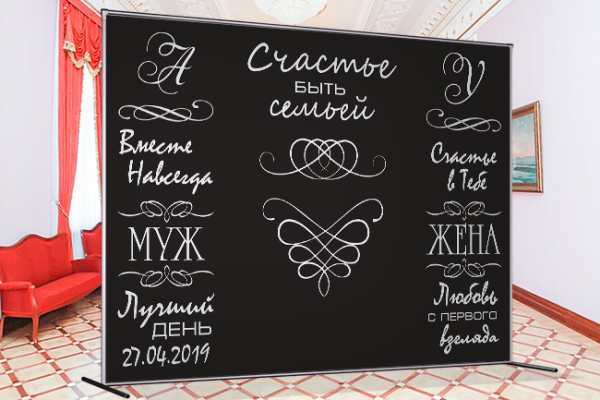 А
Вместе
Навсегда
МУЖ
Лучший
ДЕНЬ
27.04.2019
Счастье
БЫТЬ
семьей
У
Счастье
в Тебе
ЖЕНА
Любовь
С ПЕРВОГО
взгляда